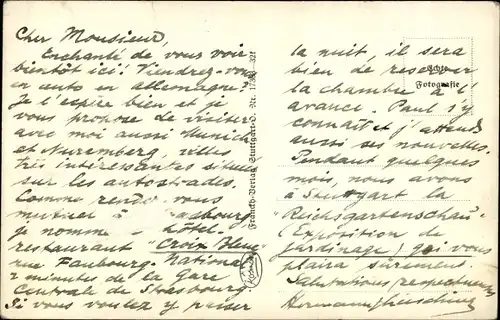 Cher Monsieur,
Enchanté de vous voir
bientôt ici! Viendrez-vous
en auto en allemagne?
Je l'espère bien et je
vous propose de visiter
avec moi aussi Munich
et Nuremberg, villes
très intéressantes situées
sur les autostrades.
Comme rendez-vous
à
je nomme hôtel-
restaurant "Croix Bleue
rue Faubourg-National
2 minutes de la Gare
Centrale de Strasbourg
Si vous voulez y passer
Franckh-Verlag Stuttgart-O. Nr.
Echte
Fotografie
la nuit, il sera
bien de reserver
la chambre à l'
avance. Paul s'y
connaît et j'attends
aussi ses nouvelles.
Pendant quelques
mois, nous avons
à Stuttgart la
"Reichsgartenschau"
(Exposition de
jardinage) qui vous
plaira sûrement.
Salutations respectueuses
Hermann